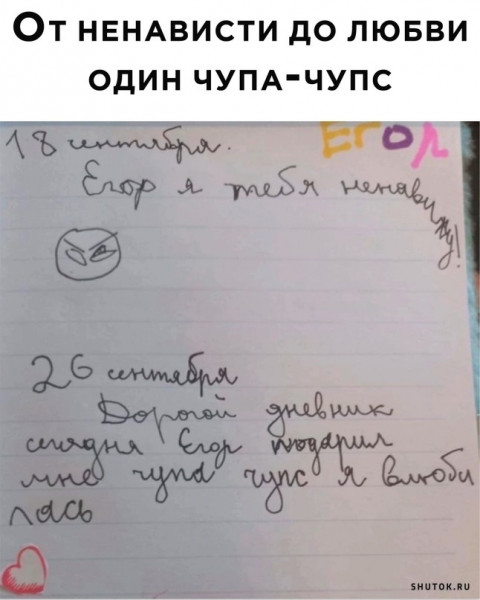 От ненависти до любви
один чупа-чупс
18 сентября.
ЕГОР
Егор я тебя ненавижу!
26 сентября
Дорогой дневник
сегодня Егор подарил
мне чупа чупс я влюби
лась
SHUTOK.RU